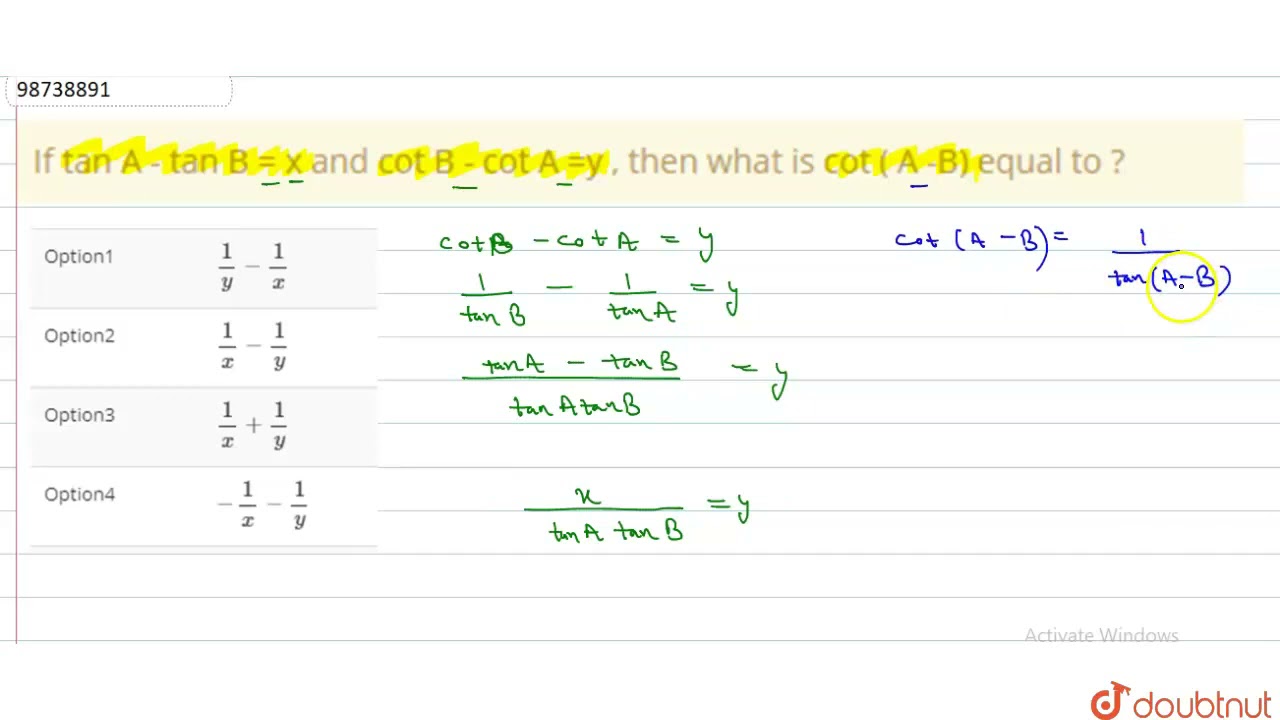 98738891
If tan A - tan B = x and cot B - cot A =y , then what is cot ( A -B) equal to ?
Option1 1/y - 1/x
Option2 1/x - 1/y
Option3 1/x + 1/y
Option4 -1/x - 1/y
cot B - cot A = y
1/tan B - 1/tan A = y
tan A - tan B / tan A tan B = y
x / tan A tan B = y
cot (A - B) = 1/tan (A - B)
Activate Windows
doubtnut